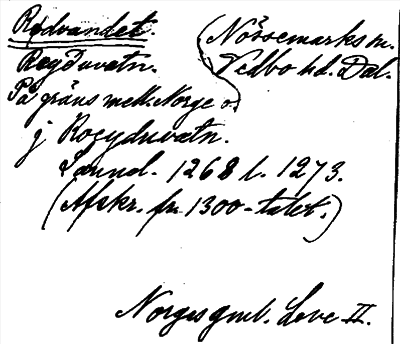 Rødvandet.
(Nössemarks sn.
Vedbo hd. Dal.
Røyðuvatn.
På gräns mell. Norge o.
j Roeyduvatn.
Laund. 1268 l. 1273.
(Afskr. fr. 1300-talet.)
Norges gml. Love II.